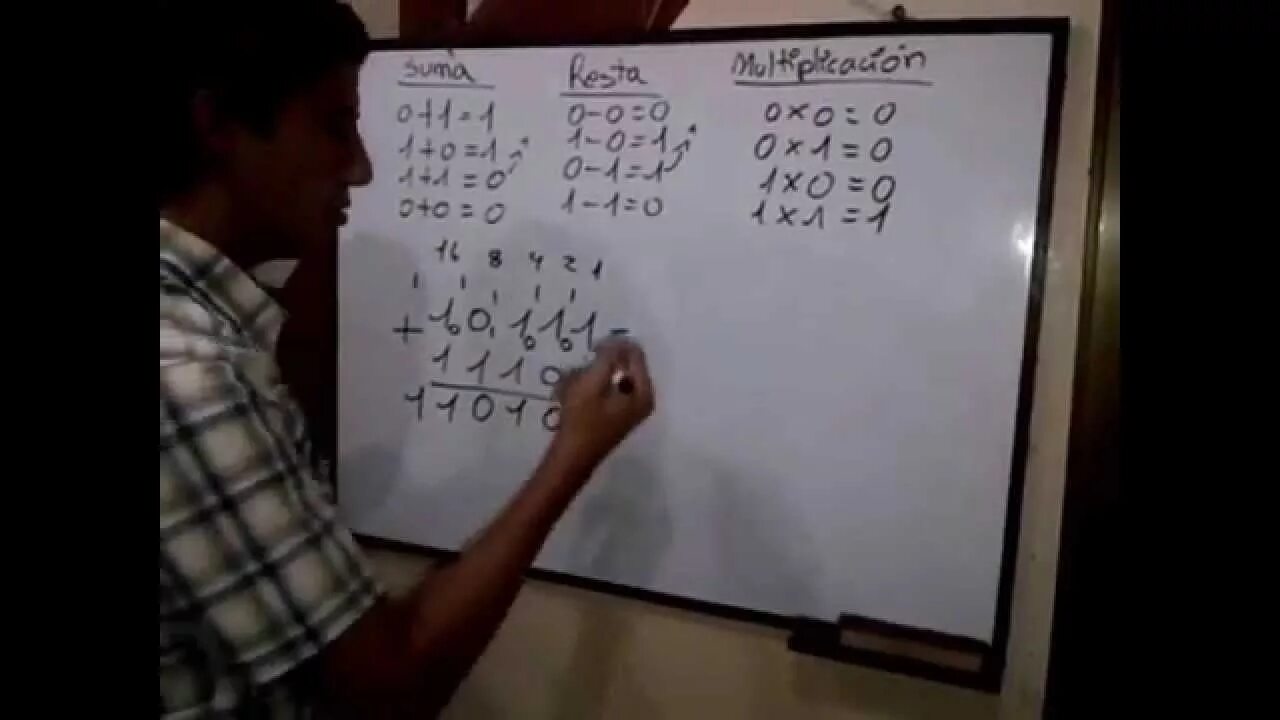 Suma
0+1=1
1+0=1
1+1=0
0+0=0
Resta
0-0=0
1-0=1
0-1=1
1-1=0
Multiplicación
0×0=0
0×1=0
1×0=0
1×1=1
16 8 4 2 1
1 1 1 1 1
+10111=
1110
11010